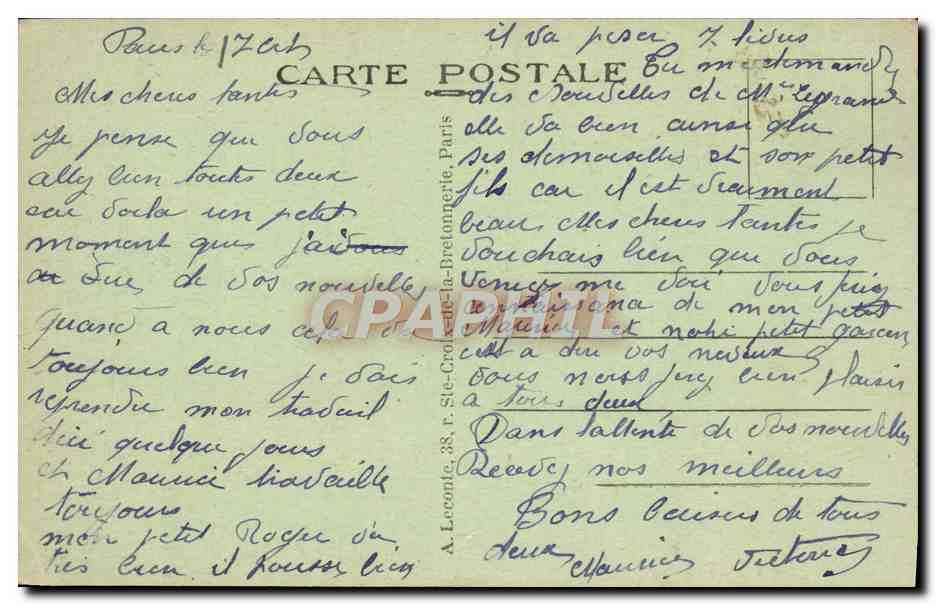 Paris le 17 Oct
CARTE POSTALE
Mes cheres tantes
Je pense que vous
allez bien toutes deux
car voila un petit
moment que j'ai vous
eue de vos nouvelles
quand a nous cela va
toujours bien je vais
reprendre mon travail
dici quelque jours
et Maurice travaille
toujours
mon petit Roger va
très bien il pousse bien
A. Leconte, 38, r. Ste-Croix-de-la-Bretonnerie, Paris
il va peser 7 livres
Tu me demandes
des Nouvelles de Mme Legrand
elle va bien ainsi que
ses demoiselles et son petit
fils car il est vraiment
beau Mes cheres tantes je
voudrais bien que vous
venez me voir vous feriez
connaissance de mon petit
Maurice et notre petit garcon
cest a dire vos neveux
vous nous ferez bien plaisir
a tous deux
Dans lattente de vos nouvelles
Recevez nos meilleurs
Bons baisers de tous
deux Maurice Victorine
CPARAMA